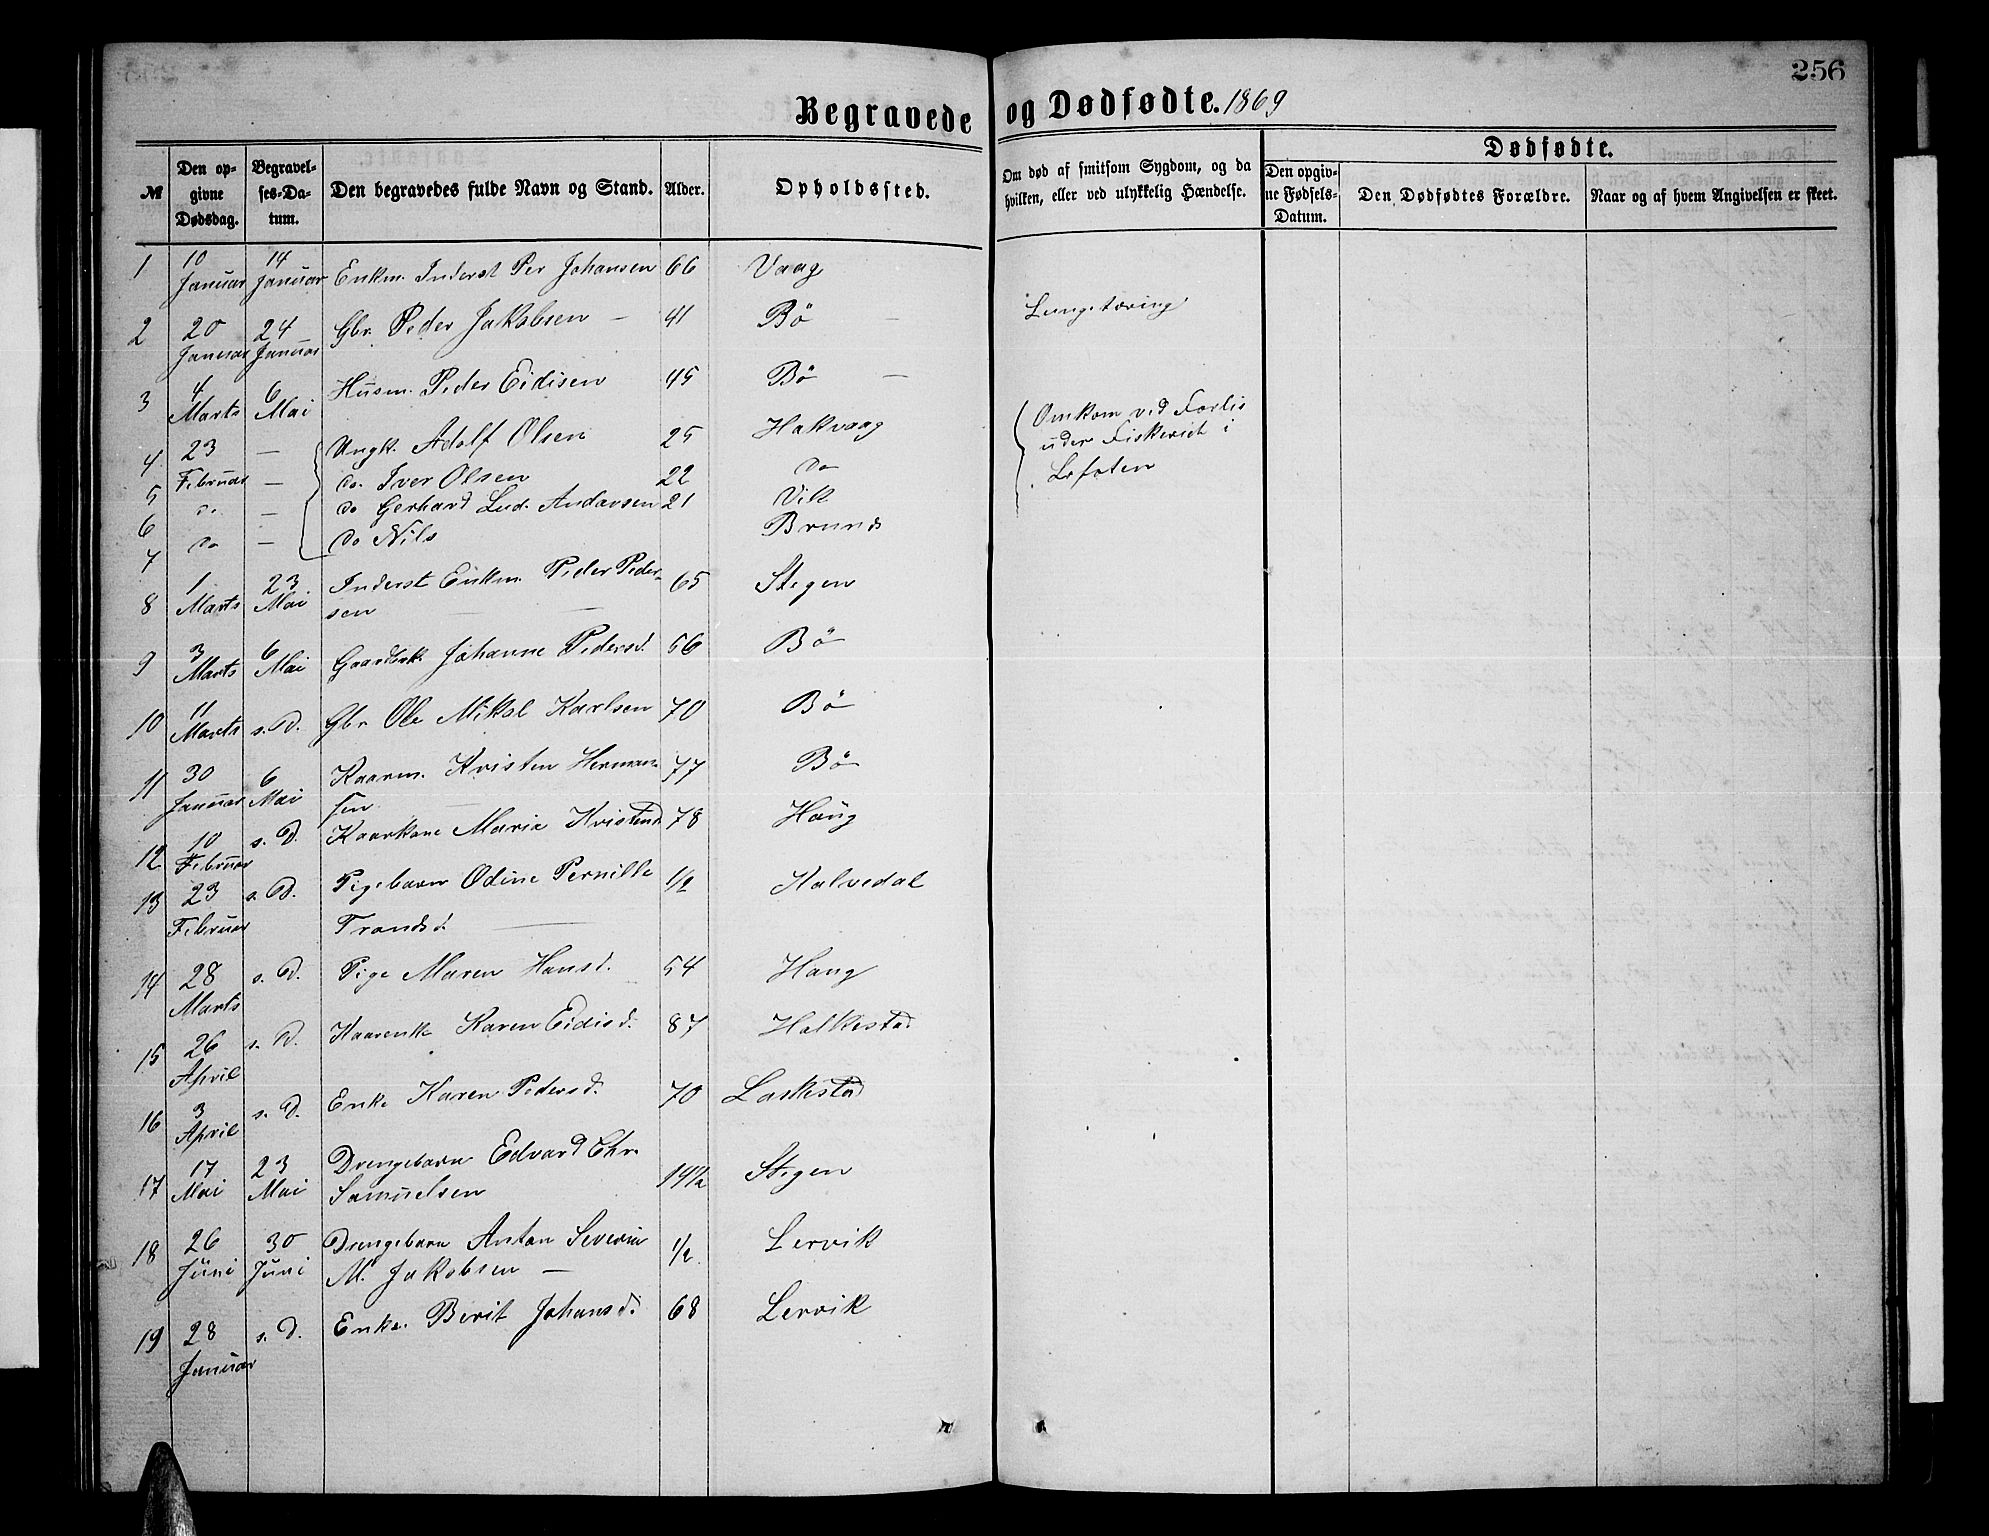 256
Begravede og Dødfødte. 1869
№ Den opgivne Dødsdag. Begravelses-Datum. Den begravedes fulde Navn og Stand. Alder. Opholdssted. Om død af smitsom Sygdom, og da hvilken, eller ved ulykkelig Hændelse. Dødfødte. Den opgivne Fødsels-Datum. Den Dødfødtes Forældre. Naar og af hvem Angivelsen er skeet.
1 10 Januar 14 Januar Enkm. Inderst Per Johansen 66 Vaag
2 20 Januar 24 Januar Gbr. Peder Jakobsen — 41 Bö — Lungetæring
3 4 Marts 6 Mai Husm. Peder Eidisen 45 Bö —
4 23 Februar — Ungk. Adolf Olsen 25 Hakvaag Omkom ved Forlis
5 — do. Iver Olsen 22 do under Fiskeriet i
6 do — do Gerhard Lud. Andersen 21 Vik Lofoten
7 do — do Nils Brund
8 1 Marts 23 Mai Inderst Enkm. Peder Peder-
sen — — 65 Stegen
9 3 Marts 6 Mai Gaardk. Johanne Pedersd. 56 Bö
10 11 Marts s. D. Gbr Ole Mikal Karlsen 70 Bö
11 30 Januar 6 Mai Kaarem. Kristen Herman-
sen — 77 Bö
12 10 Februar s. D. Kaarkone Maria Kristensd 78 Haug
13 23 Februar s. D. Pigebarn Odine Pernille
Trondsd. — 1/2 Kalvedal
14 28 Marts s. D. Pige Maren Hansd. 54 Haug
15 26 April s. D. Kaarenke Karen Eidisd. 87 Holkestad
16 3 April s. D. Enke Karen Pedersd. 70 Laskestad
17 17 Mai 23 Mai Drengebarn Edvard Chr.
Samuelsen 14 1/2 Stegen
18 26 Juni 30 Juni Drengebarn Anton Severin
M. Jakobsen — 1/2 Lervik
19 28 Januar s. D. Enke. Berit Johansd. 68 Lervik